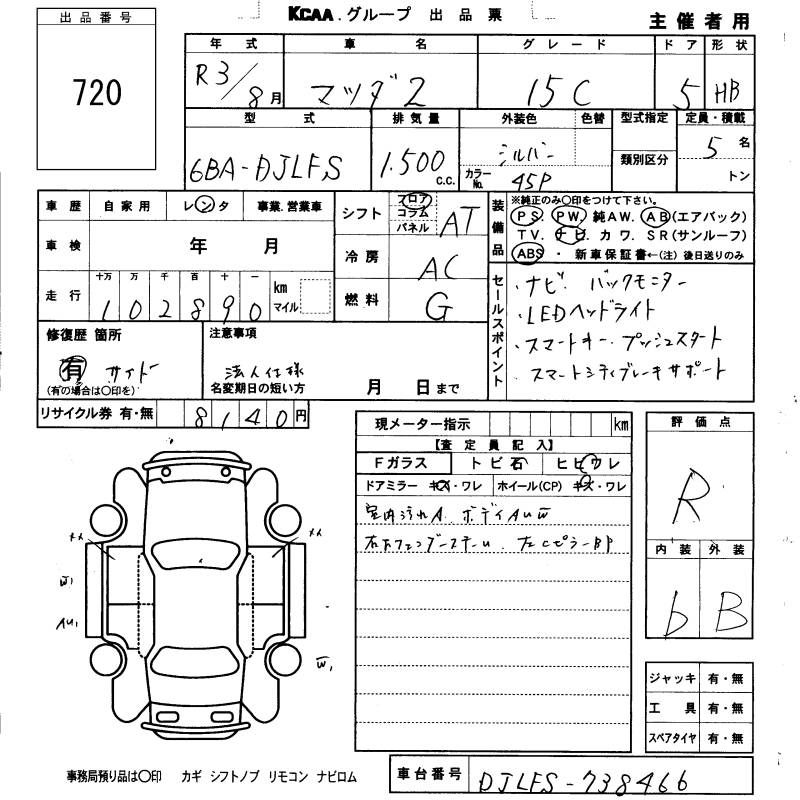 出品番号
720
KCAA.グループ 出品票
主催者用
年式 車名 グレード ドア 形状
R3/8月 マツダ2 15C 5 HB
型式 排気量 外装色 色替 型式指定 定員・積載
6BA-DJLFS 1.500 c.c. シルバー 5名
カラーNo. 45P 類別区分 トン
車歴 自家用 レンタ 事業.営業車
車検 年 月
走行 十万 万 千 百 十 一
1 0 2 8 9 0 km マイル
シフト フロア コラム パネル AT
冷房 AC
燃料 G
装備品
※純正のみ○印をつけて下さい。
PS. PW. 純AW. AB(エアバック)
TV. ナビ. カワ. SR(サンルーフ)
ABS ・ 新車保証書←(注)後日送りのみ
セールスポイント
・ナビ バックモニター
・LEDヘッドライト
・スマートキー. プッシュスタート
スマートシティブレーキサポート
修復歴 箇所
有 サイド
(有の場合は○印を)
注意事項
法人仕様
名変期日の短い方 月 日まで
リサイクル券 有・無 8140円
現メーター指示 km
【査定員記入】
Fガラス トビ石 ヒビワレ
ドアミラー キズ・ワレ ホイール(CP) キズ・ワレ
室内汚れA. ボディAUW
右Fフェンダースチール 左CピラーBP
評価点
R
内装 外装
b B
ジャッキ 有・無
工具 有・無
スペアタイヤ 有・無
メメ メメ
W1
AU1
W1
事務局預り品は○印 カギ シフトノブ リモコン ナビロム
車台番号 DJLFS-738466